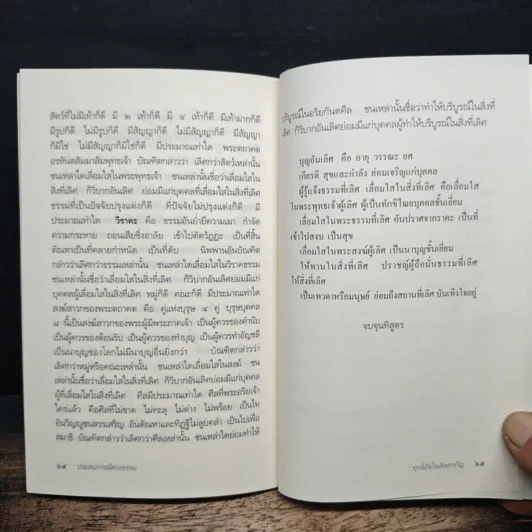 สัตว์ที่ไม่มีเท้าก็ดี มี ๒ เท้าก็ดี มี ๔ เท้าก็ดี มีเท้ามากก็ดี
มีรูปก็ดี ไม่มีรูปก็ดี มีสัญญาก็ดี ไม่มีสัญญาก็ดี มีสัญญา
ก็มิใช่ ไม่มีสัญญาก็มิใช่ก็ดี มีประมาณเท่าใด พระตถาคต
อรหันตสัมมาสัมพุทธเจ้า บัณฑิตกล่าวว่า เลิศกว่าสัตว์เหล่านั้น
ชนเหล่าใดเลื่อมใสในพระพุทธเจ้า ชนเหล่านั้นชื่อว่าเลื่อมใสใน
สิ่งที่เลิศ ก็วิบากอันเลิศ ย่อมมีแก่บุคคลผู้เลื่อมใสในสิ่งที่เลิศ
ธรรมที่เป็นปัจจัยปรุงแต่งก็ดี ที่ปัจจัยไม่ปรุงแต่งก็ดี มี
ประมาณเท่าใด วิราคะ คือ ธรรมอันย่ำยีความเมา กำจัด
ความกระหาย ถอนเสียซึ่งอาลัย เข้าไปตัดวัฏฏะ เป็นที่สิ้น
ตัณหาเป็นที่คลายกำหนัด เป็นที่ดับ นิพพานอันบัณฑิต
กล่าวว่าเลิศกว่าธรรมเหล่านั้น ชนเหล่าใดเลื่อมใสในวิราคธรรม
ชนเหล่านั้นชื่อว่าเลื่อมใสในสิ่งที่เลิศ ก็วิบากอันเลิศย่อมมีแก่
บุคคลผู้เลื่อมใสในสิ่งที่เลิศ หมู่ก็ดี คณะก็ดี มีประมาณเท่าใด
สงฆ์สาวกของพระตถาคต คือ คู่แห่งบุรุษ ๔ คู่ บุรุษบุคคล
๘ นี้เป็นสงฆ์สาวกของพระผู้มีพระภาคเจ้า เป็นผู้ควรของคำนับ
เป็นผู้ควรของต้อนรับ เป็นผู้ควรของทำบุญ เป็นผู้ควรทำอัญชลี
เป็นนาบุญของโลกไม่มีนาบุญอื่นยิ่งกว่า บัณฑิตกล่าวว่า
เลิศกว่าหมู่หรือคณะเหล่านั้น ชนเหล่าใดเลื่อมใสในสงฆ์ ชน
เหล่านั้นชื่อว่าเลื่อมใสในสิ่งที่เลิศ ก็วิบากอันเลิศย่อมมีแก่บุคคล
ผู้ที่เลื่อมใสในสิ่งที่เลิศ ศีลมีประมาณเท่าใด ศีลที่พระอริยเจ้า
ใคร่แล้ว คือศีลที่ไม่ขาด ไม่ทะลุ ไม่ด่าง ไม่พร้อย เป็นไท
อันวิญญูชนสรรเสริญ อันตัณหาและทิฏฐิไม่ลูบคลำ เป็นไปเพื่อ
สมาธิ บัณฑิตกล่าวว่าเลิศกว่าศีลเหล่านั้น ชนเหล่าใดย่อมทำให้
๒๔ ประสบการณ์ทางธรรม
บริบูรณ์ในอริยกันตศีล ชนเหล่านั้นชื่อว่าทำให้บริบูรณ์ในสิ่งที่
เลิศ ก็วิบากอันเลิศย่อมมีแก่บุคคลผู้ทำให้บริบูรณ์ในสิ่งที่เลิศ
บุญอันเลิศ คือ อายุ วรรณะ ยศ
เกียรติ สุขและกำลัง ย่อมเจริญแก่บุคคล
ผู้รู้แจ้งธรรมที่เลิศ เลื่อมใสในสิ่งที่เลิศ คือเลื่อมใส
ในพระพุทธเจ้าผู้เลิศ ผู้เป็นทักขิไณยบุคคลชั้นเยี่ยม
เลื่อมใสในพระธรรมที่เลิศ อันปราศจากราคะ เป็นที่
เข้าไปสงบ เป็นสุข
เลื่อมใสในพระสงฆ์ผู้เลิศ เป็นนาบุญชั้นเยี่ยม
ให้ทานในสิ่งที่เลิศ ปราชญ์ผู้ถือมั่นธรรมที่เลิศ
ให้สิ่งที่เลิศ
เป็นเทวดาหรือมนุษย์ ย่อมถึงสถานที่เลิศ บันเทิงใจอยู่
จบจุนทิสูตร
ทุกข์ภัยในสังสารวัฏ ๒๕